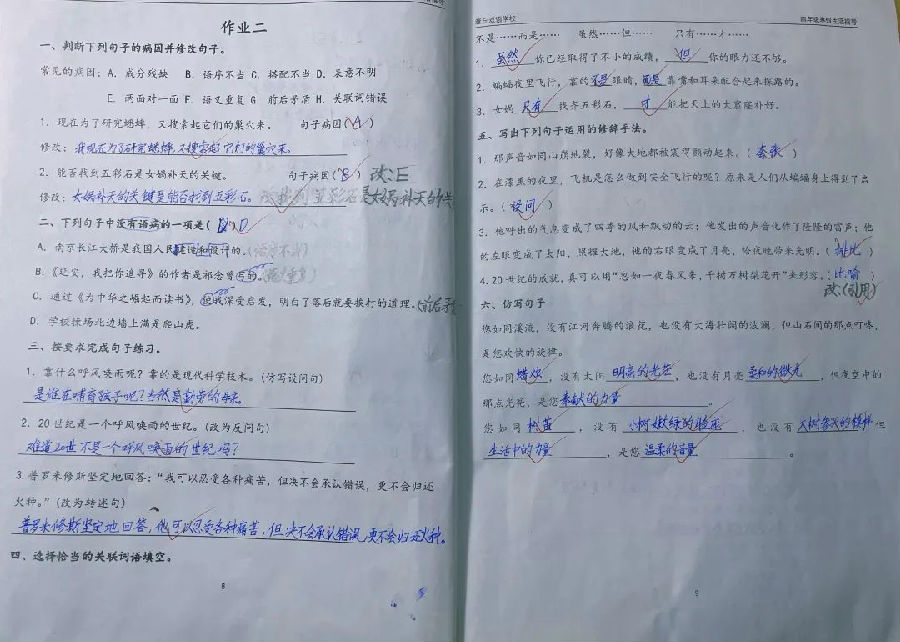 作业二
一、判断下列句子的病因并修改句子。
常见的病因：A. 成分残缺 B. 语序不当 C. 搭配不当 D. 表意不明
E. 两面对一面 F. 语义重复 G. 前后矛盾 H. 关联词错误
1. 现在为了研究蟋蟀，又搜索起它们的巢穴来。 句子病因(A)
修改：我现在为了研究蟋蟀，又搜索起它们的巢穴来。
2. 能否找到五彩石是女娲补天的关键。 句子病因(B) 改：E
修改：女娲补天的关键是能否找到五彩石。
二、下列句子中没有语病的一项是( D )
A. 南京长江大桥是我国人民建设和设计的。(语序不当)
B.《延安，我把你追寻》的作者是祁念曾写的。
C. 通过《为中华之崛起而读书》，使我深受启发，明白了落后就要挨打的道理。
D. 学校操场北边墙上满是爬山虎。
三、按要求完成句子练习。
1. 靠什么呼风唤雨呢？靠的是现代科学技术。（仿写设问句）
是谁在哺育孩子呢？当然是勤劳的母亲
2. 20世纪是一个呼风唤雨的世纪。（改为反问句）
难道20世纪不是一个呼风唤雨的世纪吗？
3 普罗米修斯坚定地回答：“我可以忍受各种痛苦，但决不会承认错误，更不会归还
火种。”（改为转述句）
普罗米修斯坚定地回答，他可以忍受各种痛苦，但决不会承认错误，更不会归还火种。
四、选择恰当的关联词语填空。
8
不是……而是…… 虽然……但…… 只有……才……
1. 虽然 你已经取得了不小的成绩， 但 你的眼力还不够。
2. 蝙蝠夜里飞行，靠的不是眼睛，而是靠嘴和耳朵配合起来探路的。
3. 女娲 只有 找齐五彩石， 才 能把天上的大窟窿补好。
五、写出下列句子运用的修辞手法。
1. 那声音如同山崩地裂，好像大地都被震得颤动起来。（夸张）
2. 在漆黑的夜里，飞机是怎么做到安全飞行的呢？原来是人们从蝙蝠身上得到了启
示。（设问）
3. 他呼出的气息变成了四季的风和飘动的云；他发出的声音化作了隆隆的雷声；他
的左眼变成了太阳，照耀大地，他的右眼变成了月亮，给夜晚带来光明。（排比）
4. 20世纪的成就，真可以用“忽如一夜春风来，千树万树梨花开”来形容。（比喻）
改：(引用)
六、仿写句子
您如同溪流，没有江河奔腾的浪花，也没有大海壮阔的波澜，但山石间的那点叮咚，
是您欢快的旋律。
您如同 蜡烛 ，没有太阳 明亮的光芒 ，也没有月亮 柔和的微光 ，但夜空中的
那点光亮，是您奉献的力量 。
您如同 ，没有 小树嫩绿的 ，也没有 大树 但
生活中的 ，是您 温柔的 。
9